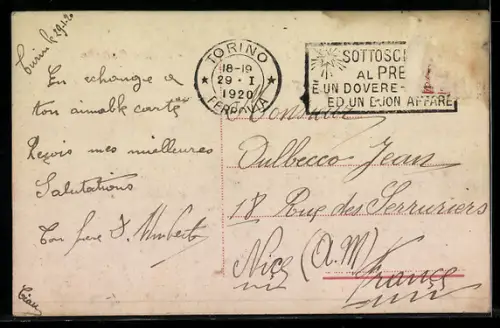 Turin le 29.1.20
En echange a
ton aimable carte
Reçois mes meilleures
Salutations
Ton frere J. Umberto
Ciau
TORINO
18-19
29 · I
1920
FERROVIA
SOTTOSCI
AL PRE
È UN DOVERE-
ED UN BUON AFFARE
Monsieur
Dulbecco Jean
18 Rue des Serruriers
Nice (A.M)
France